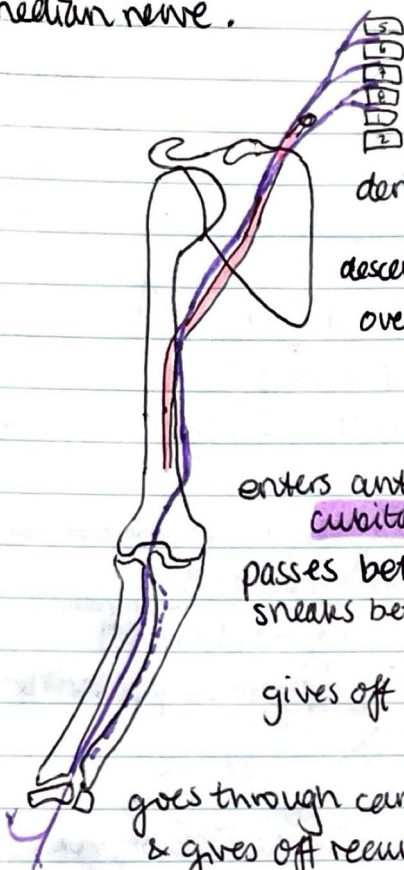 median nerve.
5
6
7
8
1
2
der
descen
ove
enters ant
cubita
passes bet
sneaks be
gives off
goes through car
& gives off recur